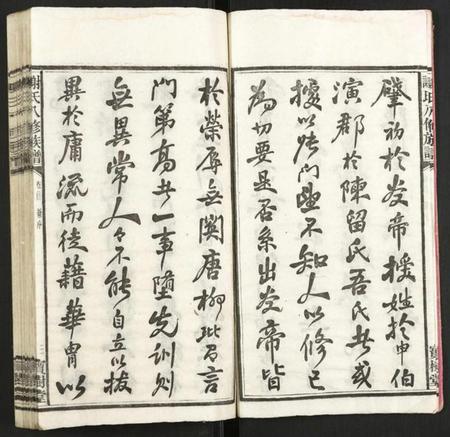 肇初於炎帝援姓於申伯
演郡於陳留氏吾氏者或
援以條門楣不知人以修己
為切要是否系出炎帝皆
於榮辱無關唐柳玭有言
門第高者一事墮先訓則
無異常人人不能自立以拔
異於庸流而徒藉華冑以
謝氏八修族譜
謝氏八修族譜
寶樹堂
寶樹堂